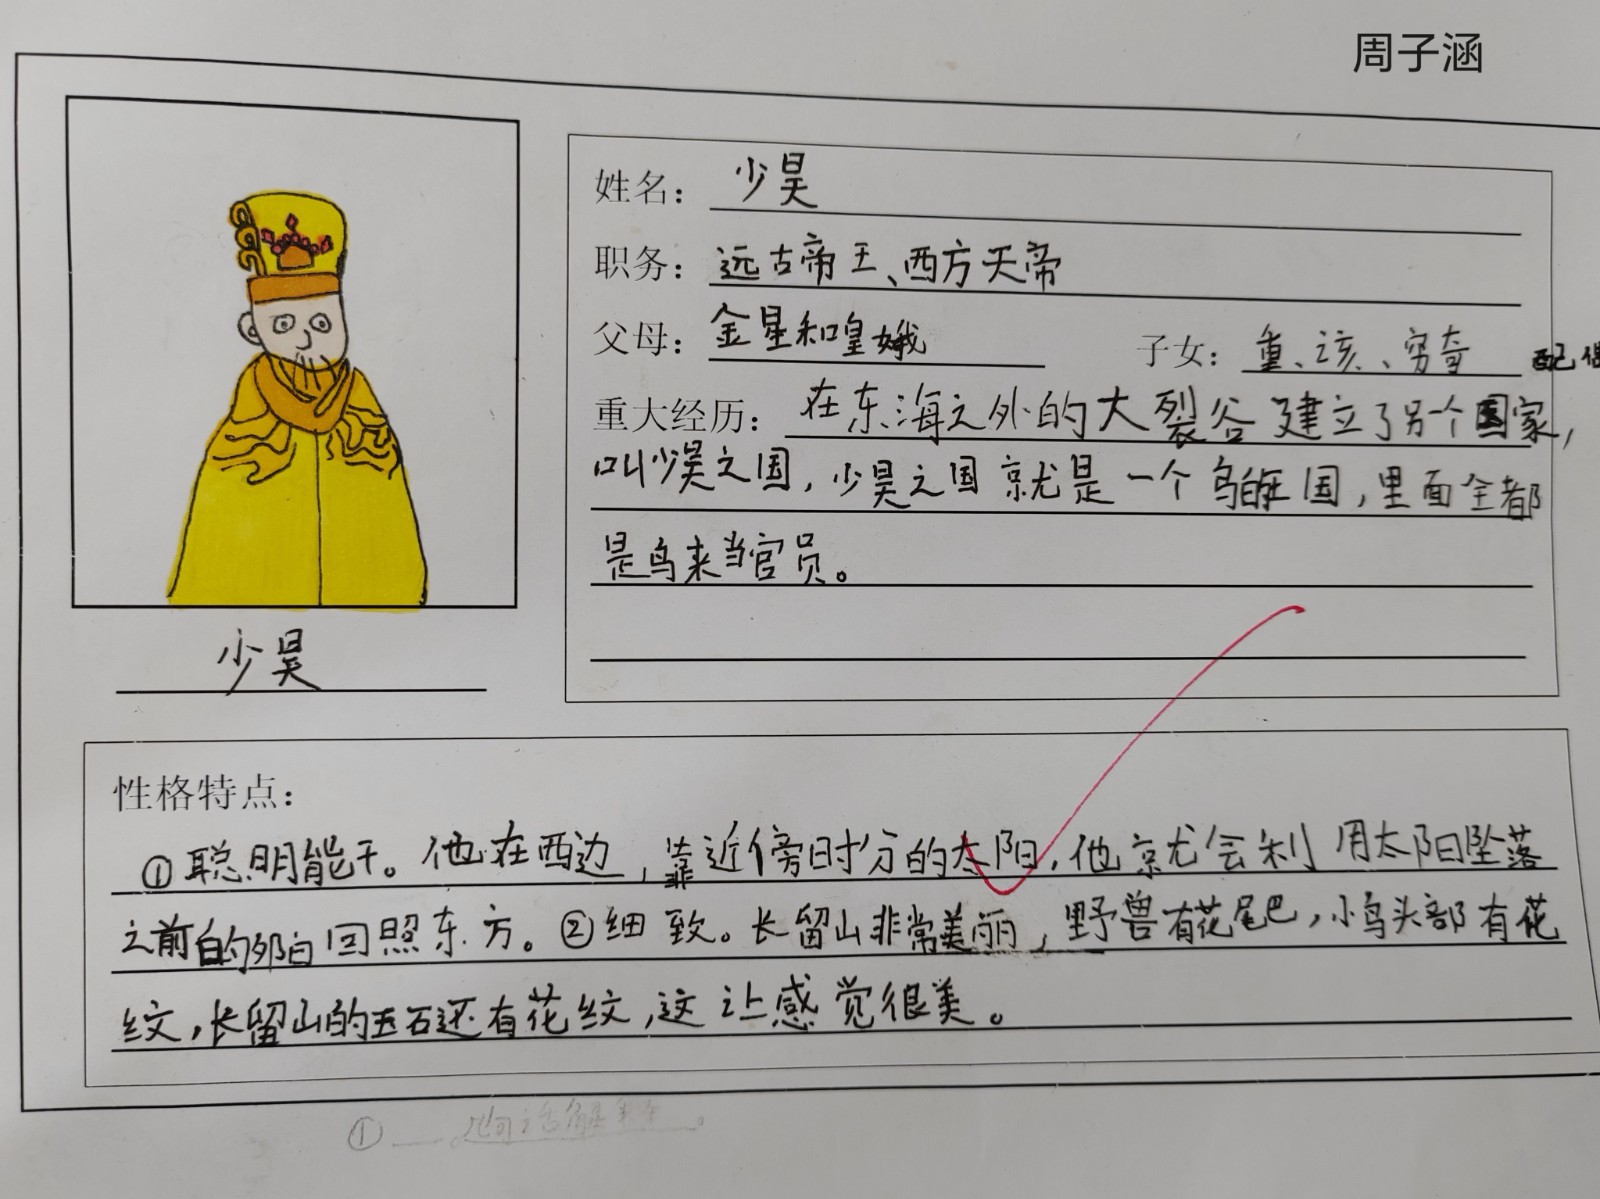 周子涵
姓名：少昊
职务：远古帝王、西方天帝
父母：金星和皇娥 子女：重、该、穷奇 配偶
重大经历：在东海之外的大裂谷建立了另个国家，
叫少昊之国，少昊之国就是一个鸟的王国，里面全都
是鸟来当官员。
少昊
性格特点：
①聪明能干。他在西边，靠近傍时分的太阳，他就会利用太阳坠落
之前的 回照东方。②细致。长留山非常美丽，野兽有花尾巴，小鸟头部有花
纹，长留山的玉石还有花纹，这让感觉很美。
①